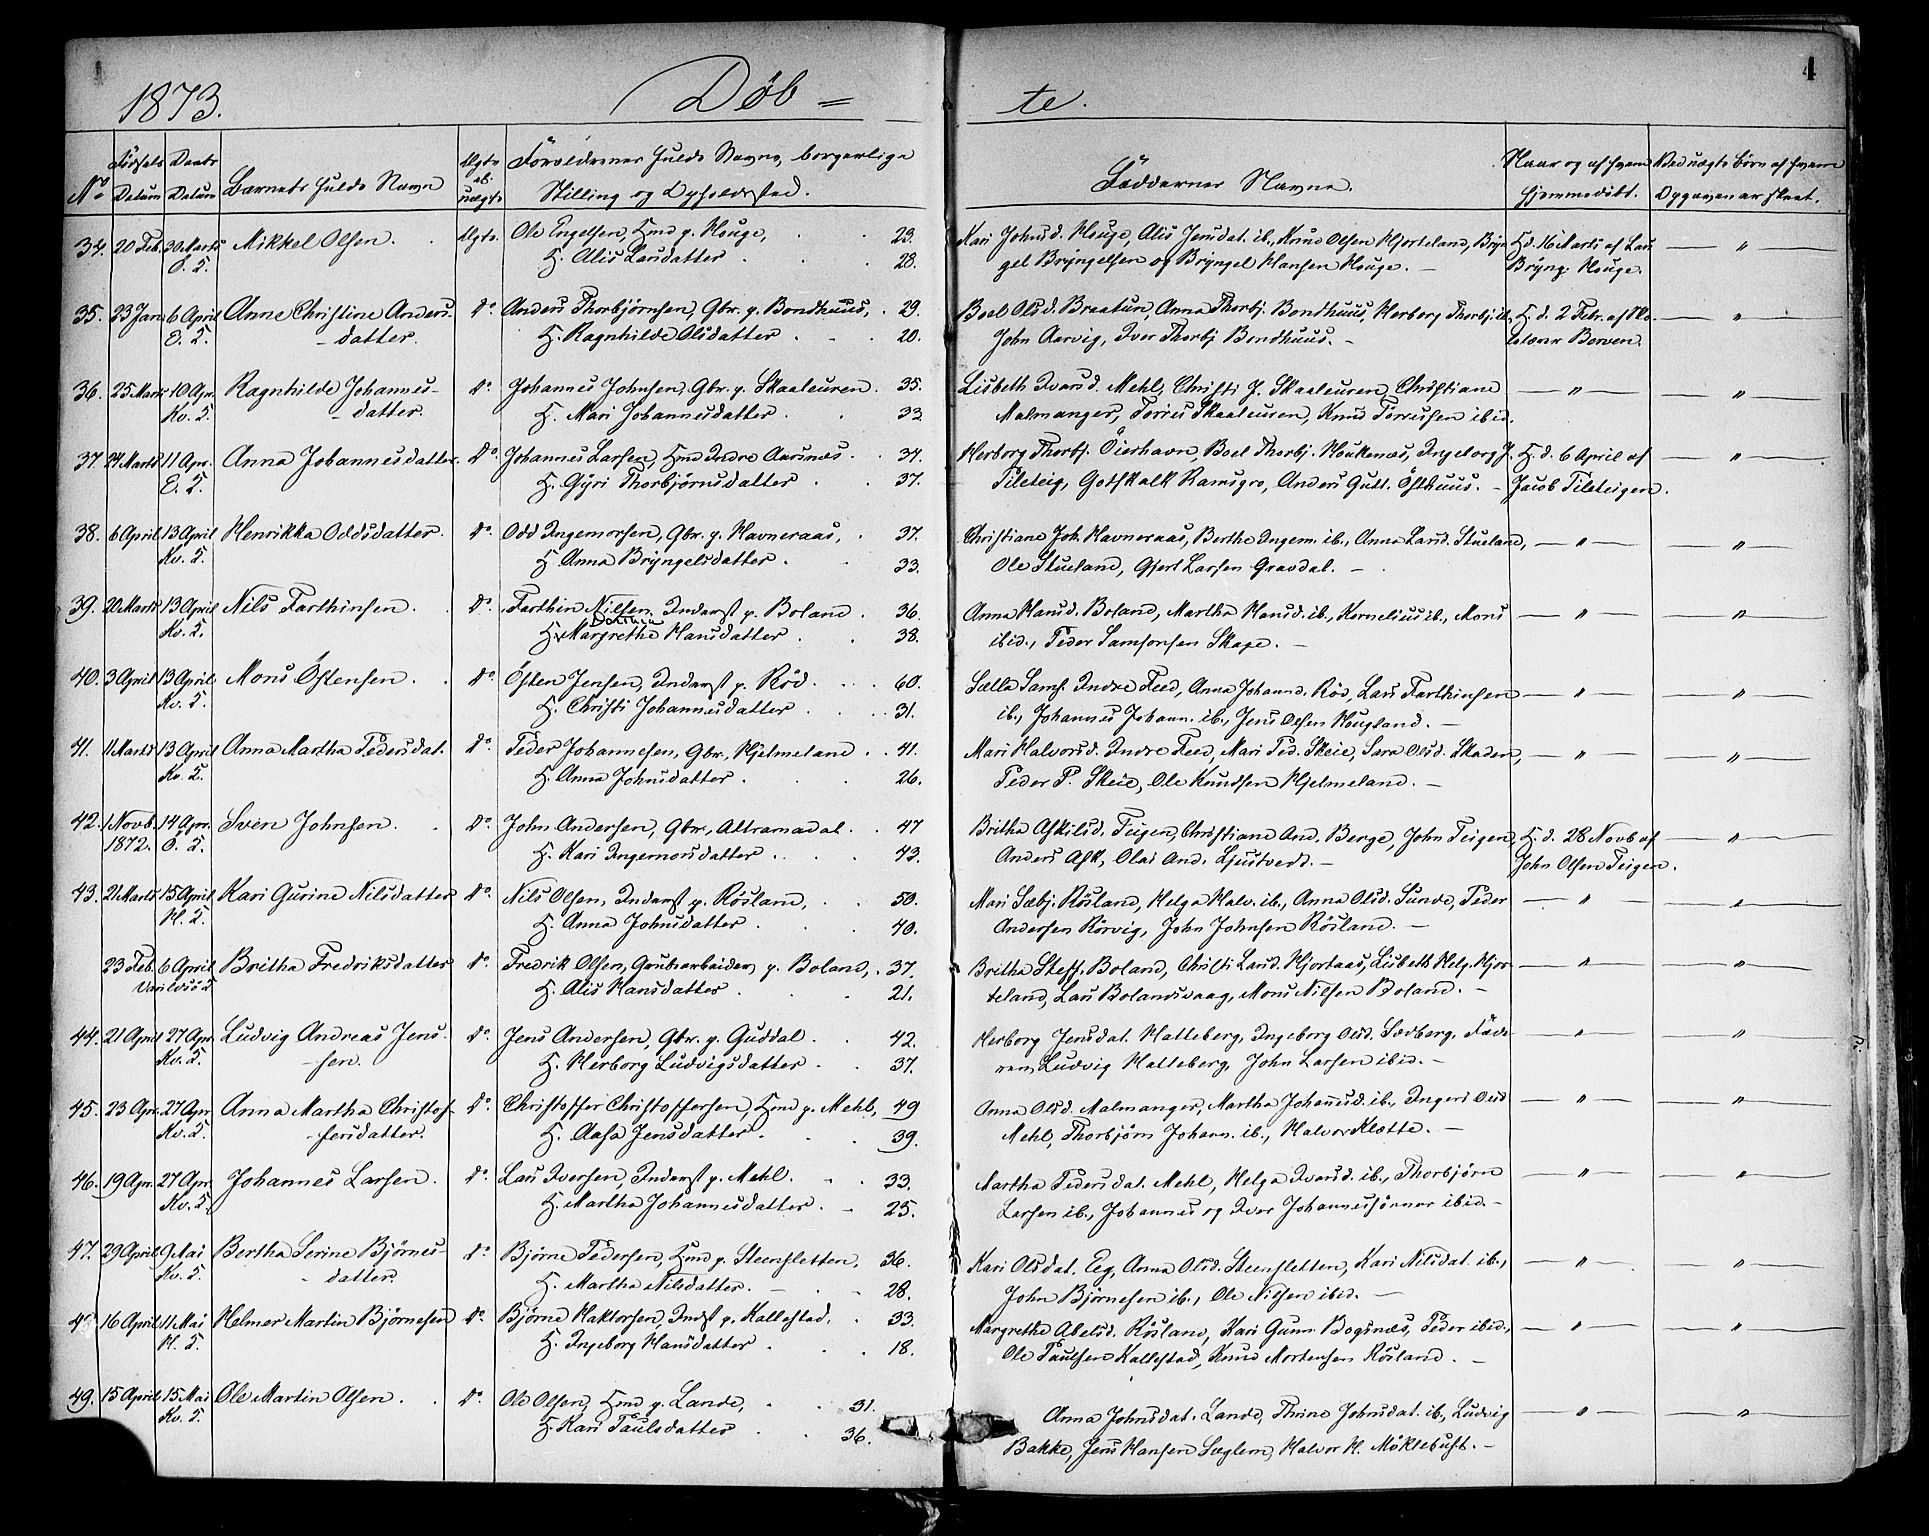 1873. Døb = te. 4
No Fødsels Datum Daabs Datum Barnets fulde Navn Ægte el. uægte Forældrenes fulde Navne, borgerlige Stilling og Opholdssted. Faddernes Navne. Naar og af hvem hjemmedøbt. Ved uægte Børn af hvem Opgaven er skeet.
34. 20 Feb. 30 Marts Mikkel Olsen. Ægte. Ole Engelsen, Hmd p. Houge, 23. Kari Johnsd. Houge, Alis Jensdat. ib., Knud Olsen Hjorteland, Bryn- H. d. 16 Marts af Lars "
Ö. T. H. Alis Larsdatter 28. gel Brÿngelsen og Brÿngel Hansen Houge. — Bryng. Houge.
35. 23 Jan. 6 April Anne Christine Anders- do. Anders Thorbjørnsen, Gbr. p. Bondhuus, 29. Boel Olsd. Braatun, Anna Thorbj. Bondhuus, Herborg Thorbj. ib., H. d. 2 Febr. af "
E. T. datter. H. Ragnhilde Olsdatter 20. John Aarvig, Iver Thorbj Bondhuus. — Berven.
36. 25 Marts 10 Apr. Ragnhilde Johannes- do. Johannes Johnsen, Gbr. p. Skaaleuren. 35. Lisbeth Ivarsd. Mehl, Christi J. Skaaleuren, Christiane " "
Kv. T. datter. H. Mari Johannesdatter. 33 Malmanger, Torris Skaaleuren, Knud Torrissen ibid.
37. 24 Marts 11 Apr. Anna Johannesdatter. do. Johannes Larsen, Hmd Indre Aarsnæs. 37. Herborg Thorbj. Öierhavn, Boel Thorbj. Haukenæs, Ingeborg J. H. d. 6 April af "
E. T. H. Gÿri Thorbjørnsdatter 37. Tileteig, Gotskalk Ramsgro, Anders Gutt. Östhuus. — Jacob Tileteigen.
38. 6 April 13 April Henrikka Oddsdatter. do. Odd Ingemorsen, Gbr. p. Havneraas, 37. Christiane Joh. Havneraas, Berthe Ingem. ib., Anna Larsd. Stueland, " "
Kv. T. H. Anna Brÿngelsdatter. 33. Ole Stueland, Gjert Larsen Gravdal. —
39. 20 Marts 13 April Nils Farthinsen. do. Farthin Nilsen. Inderst p. Boland. 36. Anna Hansd. Boland, Martha Hansd. ib., Kornelius ib., Mons " "
Kv. T. H. Margrethe Hansdatter. 38. ibid., Peder Samsonsen Skape. —
40. 3 April 13 April Mons Östensen. do. Östen Jensen, Inderst p. Röd. 60. Sælla Sams. Indre Feed, Anna Johannd. Röd, Lars Farthinsen " "
Kv. T. H. Christi Johannesdatter 31. ib., Johannes Johann. ib., Jens Olsen Hougland. —
41. 11 Marts 13 April Anna Martha Pedersdat. do. Peder Johannesen, Gbr, Hjelmeland 41. Mari Halvorsd. Indre Feed, Mari Ped. Skeie, Sara Olsd. Skaden, " "
Kv. T. H. Anna Johnsdatter. 26. Peder P. Skeie, Ole Knudsen Hjelmeland. —
42. 1 Novb. 14 Apr. Sven Johnsen. do. John Andersen, Gbr, Altramadal. 47 Britha Askilsd. Teigen, Christiane And. Berge, John Teigen, H. d. 28 Novb af "
1872. Ö. T. H. Kari Ingemorsdatter. 43. Anders Ask, Olai And. Ljustvedt. — John Olsen Teigen.
43. 21 Marts 15 April Kari Gurine Nilsdatter do. Nils Olsen, Inderst p. Røsland, 50. Mari Sæbj. Røsland, Helga Halv. ib., Anna Olsd. Sunde, Peder " "
H. T. H. Anna Johnsdatter 40. Andersen Rörvig, John Johnsen Røsland. —
23 Feb. 6 April Britha Fredriksdatter do. Fredrik Olsen, Grubearbeider p. Boland, 37. Britha Steff. Boland, Christi Larsd. Hjortaas, Lisbeth Helg. Hjor- " "
H. Alis Hansdatter 21. teland, Lars Bolandsvaag, Mons Nilsen Boland. —
44. 21 April 27 Apr Ludvig Andreas Jens- do. Jens Andersen, Gbr. p. Guddal. 42. Herborg Jensdat. Hatteberg, Ingeborg Olsd. Sævberg, Fade- " "
Kv. T. sen. H. Herborg Ludvigsdatter 37. ren, Ludvig Hatteberg, John Larsen ibid. —
45. 23 Apr. 27 Apr Anna Martha Christof- do. Christoffer Christoffersen, Hmd p. Mehl, 49 Anna Olsd. Malmanger, Martha Johansd. ib., Ingeri Olsd " "
Kv. T. fersdatter. H. Aasa Jensdatter. 39. Mehl, Thorbjörn Johann. ib., Halvor Klætte. —
46. 19 Apr. 27 Apr Johannes Larsen. do. Lars Iversen, Inderst p. Mehl. 33. Martha Pedersdat. Mehl, Helga Ivarsd. ib., Thorbjörn " "
Kv. T. H. Martha Johannesdatter. 25. Larsen ib., Johannes og Iver Johannessönner ibid. —
47. 29 April 9 Mai Bertha Serine Bjørnes- do. Bjørne Pedersen, Hmd p. Steensletten, 36. Kari Olsdat. Eeg, Anna Olsd. Steensletten, Kari Nilsdat. ib., " "
Kv. T. datter. H. Martha Nilsdatter. 28. John Bjørnesen ib., Ole Nilsen ibid. —
48 16 April 11 Mai Helmer Martin Bjørnesen do. Bjørne Haktorsen, Indst p. Kallestad. 33. Margrethe Abelsd. Røsland, Kari Gunn. Bogsnæs, Peder ibid., " "
H. T. H. Ingeborg Hansdatter 18. Ole Paulsen Kallestad, Knud Mortensen Røsland. —
49. 15 April 15 Mai Ole Martin Olsen. do. Ole Olsen, Hmd p. Lande, 31. Anna Johnsdat. Lande, Thrine Johnsdat. ib., Ludvig " "
Kv. T. H. Kari Paulsdatter 36. Bakke, Jens Hansen Sæglem, Halvor H. Möklebust. —